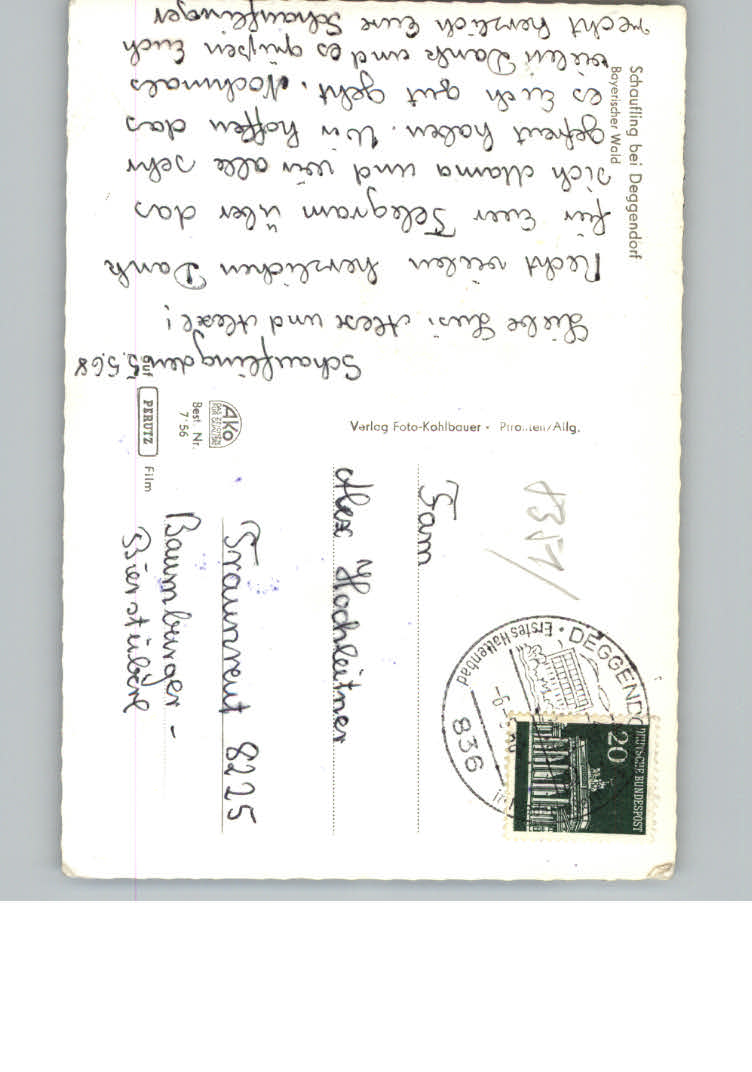 Schaufling den 5.5.68
Liebe Susi. Alex und Alexl!
Recht vielen herzlichen Dank
für Euer Telegram über das
sich Mama und wir alle sehr
gefreut haben. Wir hoffen das
es Euch gut geht. Nochmals
vielen Dank und es grüßen Euch
recht herzlich Eure Schauflinger
Schaufling bei Deggendorf
Bayerischer Wald
Verlag Foto-Kohlbauer •
AKO
DAS ZEICHEN
FÜR QUALITÄT
Best. Nr.
7 56
auf
PERUTZ
Film
Fam
Alex Hochleitner
Traunreut 8225
Baumburger-
Bierstüberl
8351/
836
DEGGENDO
Erstes Hallenbad
DEUTSCHE BUNDESPOST
20